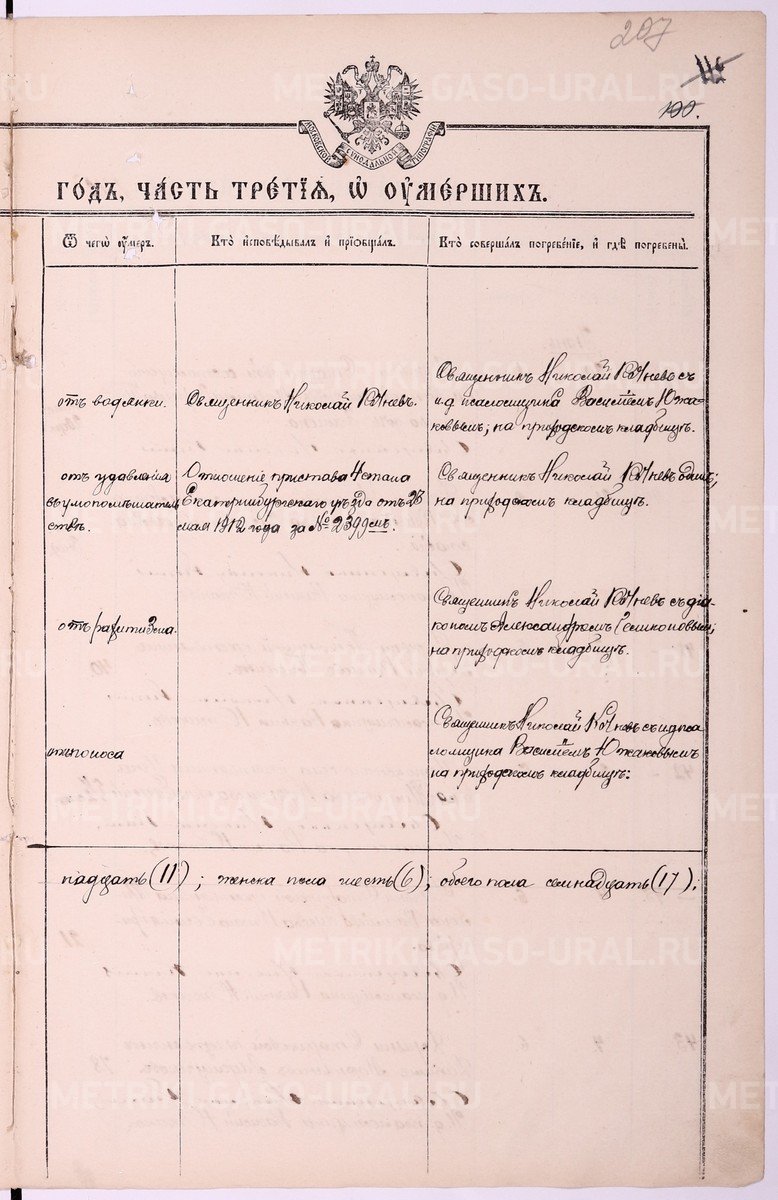 207
116
100.
МОСКОВСКОЙ СѴНОДАЛЬНОЙ ТИПОГРАФІИ
ГО́ДЪ, ЧА́СТЬ ТРЕ́ТІѦ, Ѡ҆ ОУ҆МЕ́РШИХЪ.
Ѿ чегѡ̀ оу҆́меръ.
Кто̀ и҆сповѣ́дывалъ и҆ прїѡбща́лъ.
Кто̀ соверша́лъ погребе́нїе, и҆ гдѣ̀ погребены̀.
отъ водянки.
Священникъ Николай
Священникъ Николай съ
и.д. псаломщика Василіемъ Южа-
ковымъ; на приходскомъ кладбищѣ.
отъ удавленія
въ умопомѣшатель
ствѣ.
Отношеніе пристава 4 стана
Екатеринбургскаго уѣзда отъ 28
мая 1912 года за № 2399мъ.
Священникъ Николай одинъ;
на приходскомъ кладбищѣ.
отъ рахитизма.
Священникъ Николай съ діа-
кономъ Александромъ
на приходскомъ кладбищѣ.
отъ поноса
Священникъ Николай съ ид пса
ломщика Василіемъ Южаковымъ
на приходскомъ кладбищѣ:
надцать (11); женска пола шесть (6); обоего пола семнадцать (17);
METRIKI.GASO-URAL.RU